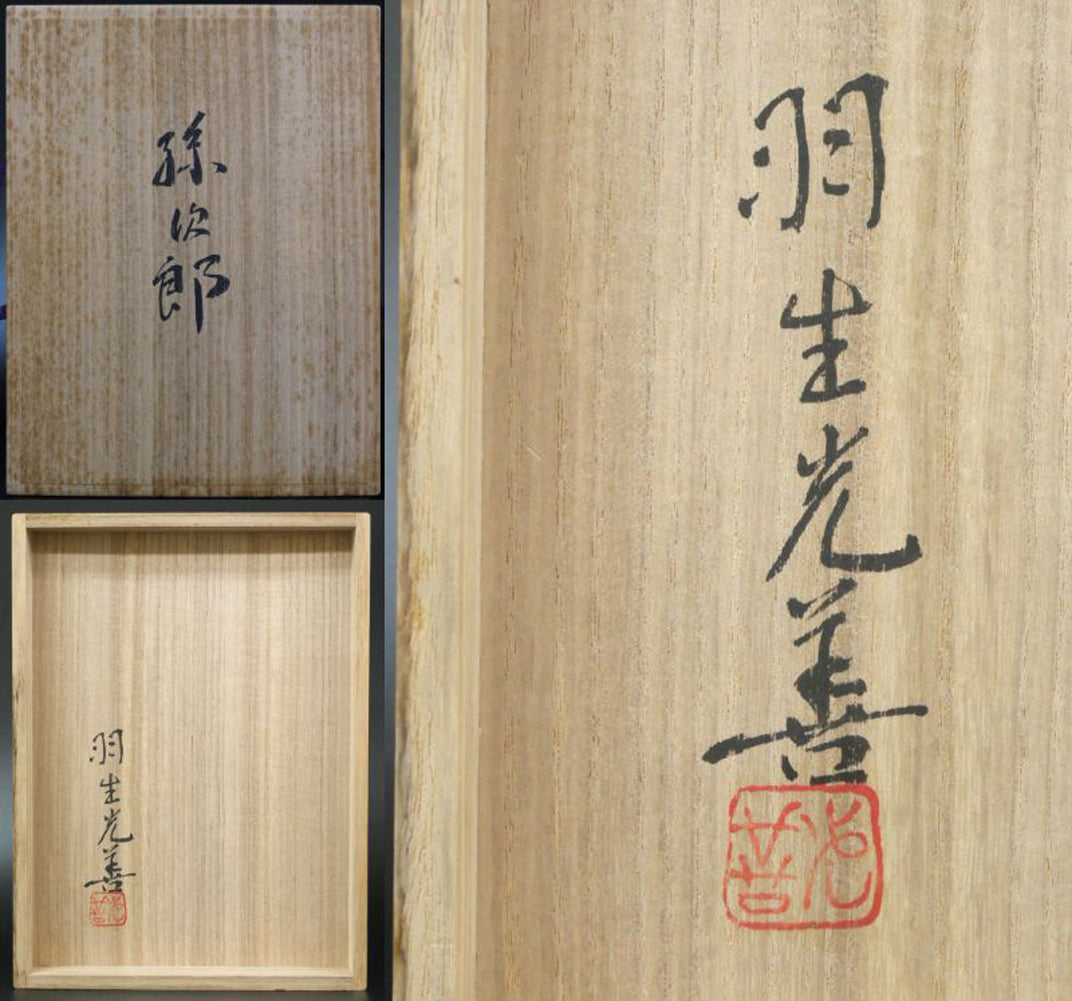 孫次郎
羽生光善
羽生光善
光善